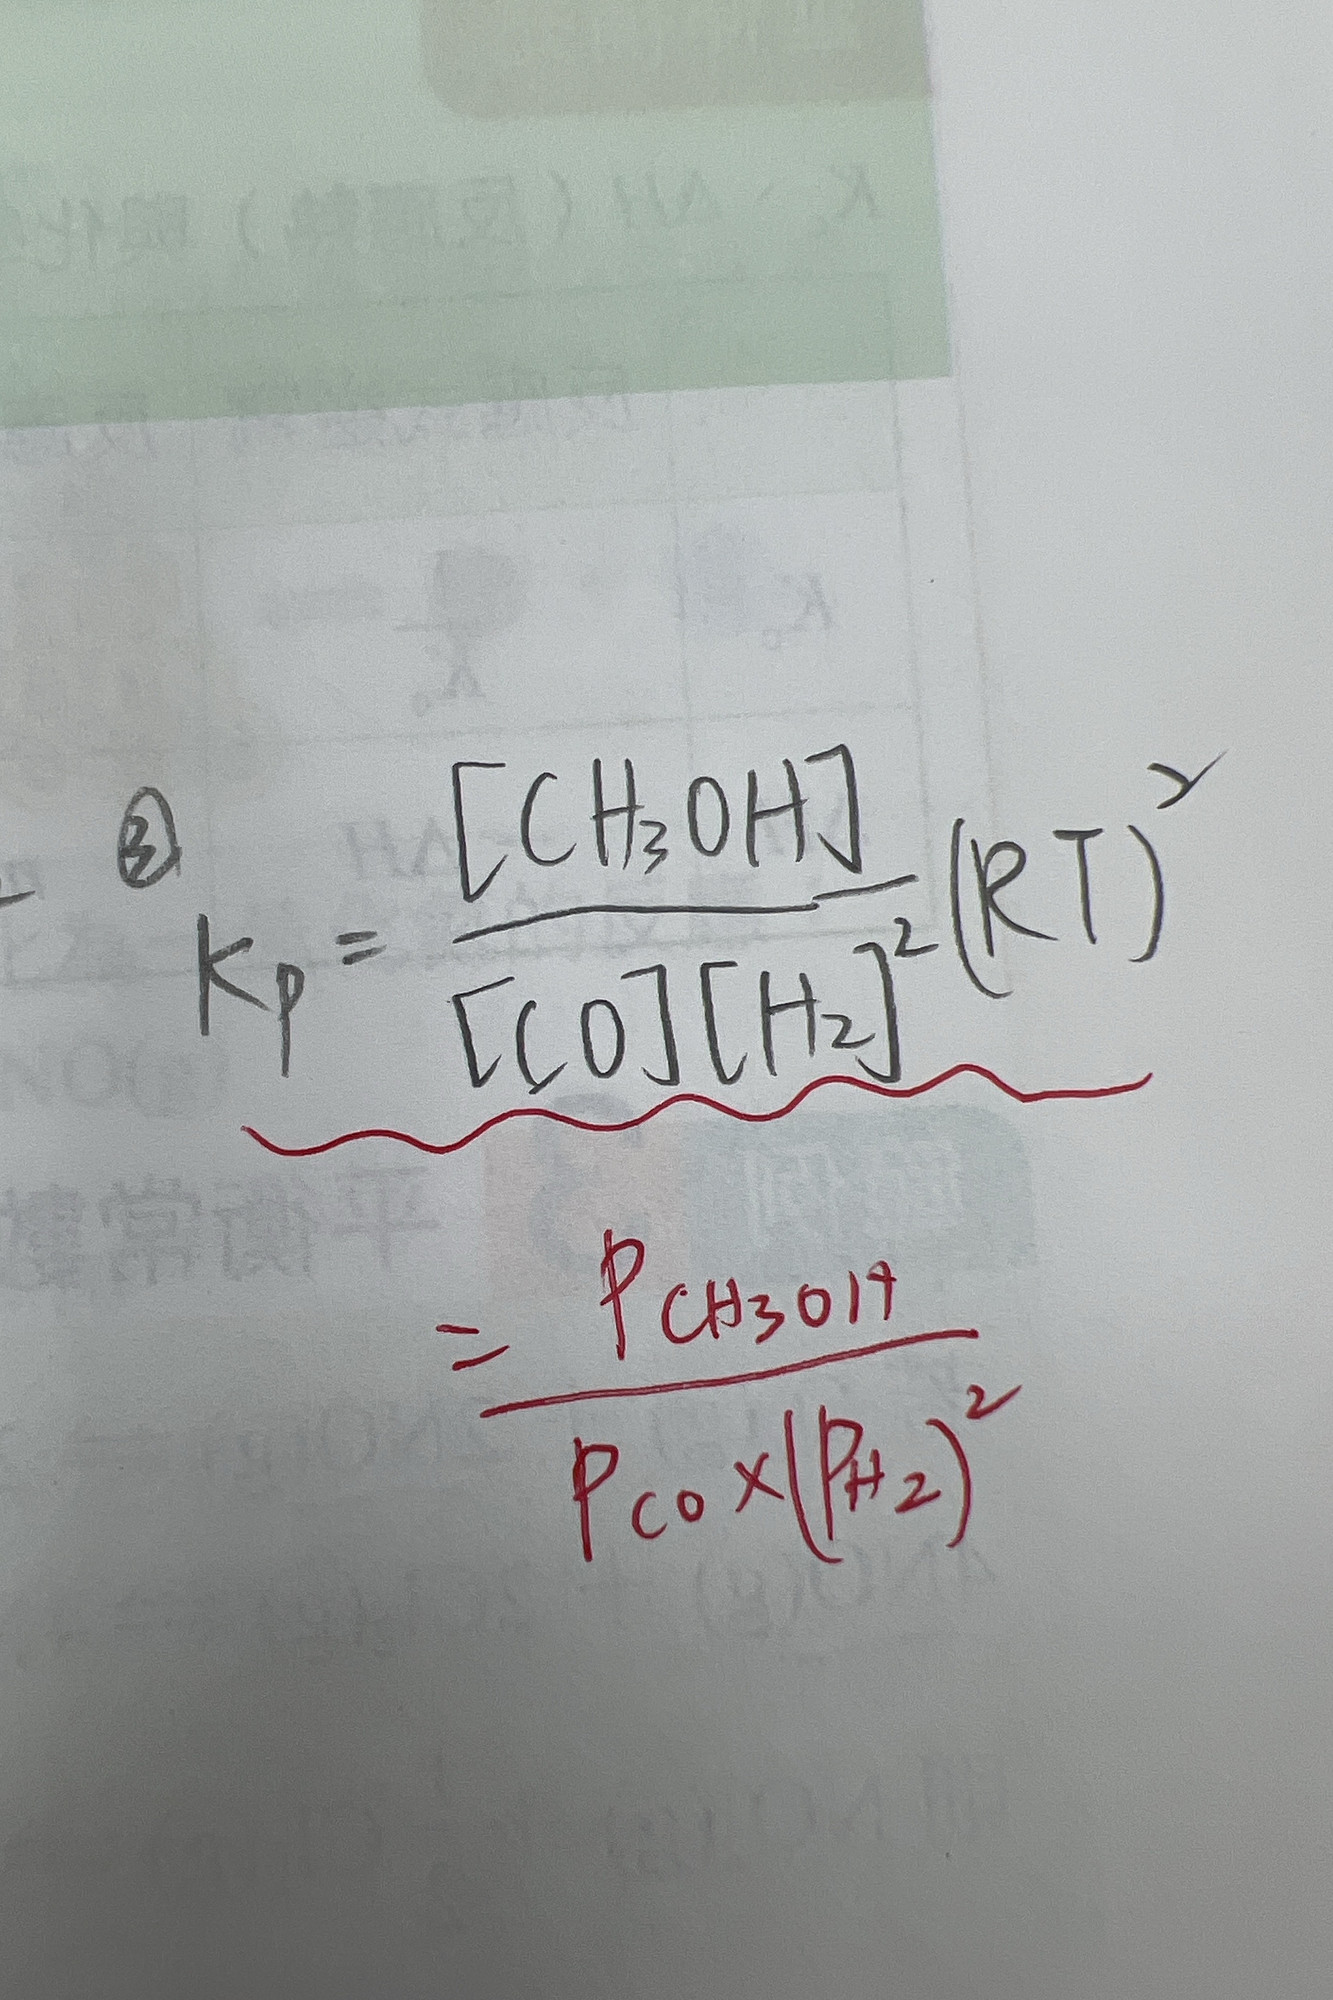 ③
Kp = [CH₃OH] / [CO][H₂]² (RT)²
= P CH₃OH / P CO × (P H₂)²